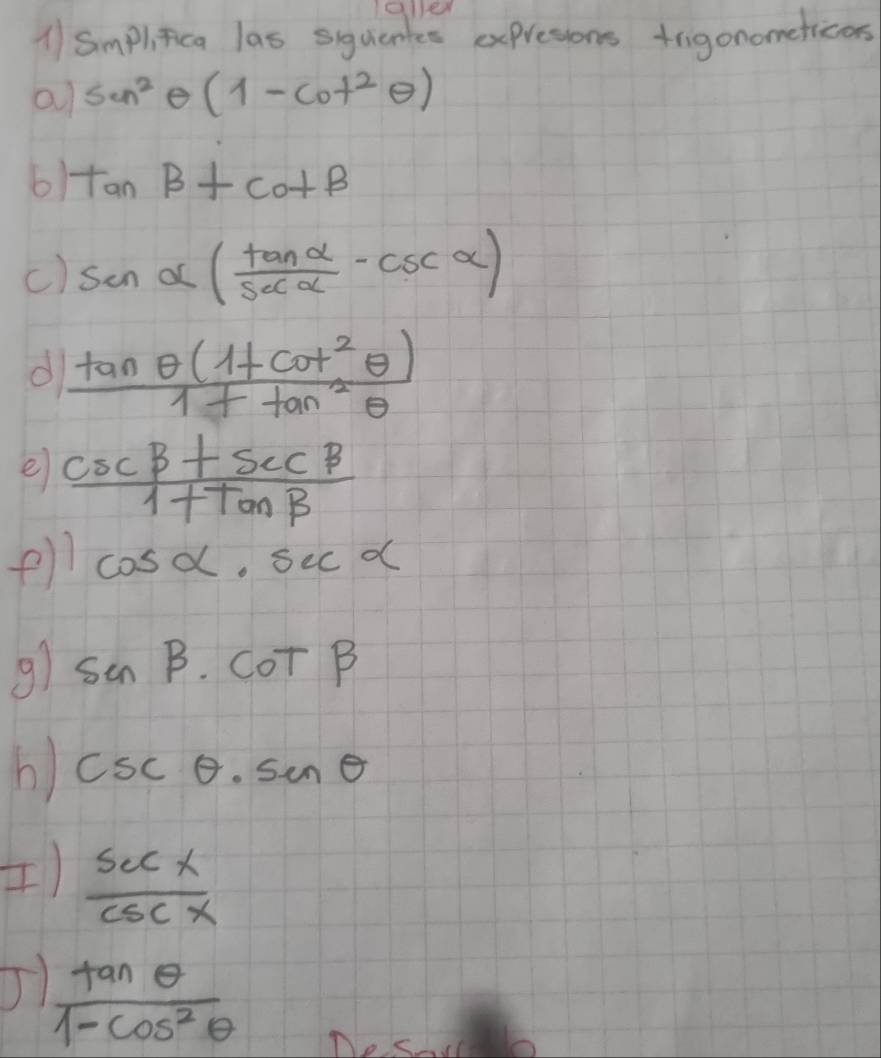 Taller
1) Simplifica las siguientes expresions trigonometricas
a) sen² θ (1 - cot² θ)
b) Tan β + cot β
c) sen α (tan α / sec α - csc α)
d) tan θ (1 + cot² θ) / 1 + tan² θ
e) csc β + sec β / 1 + Tan β
f) cos α . sec α
g) sen β . COT β
h) csc θ . sen θ
I) sec x / csc x
J) tan θ / 1 - cos² θ